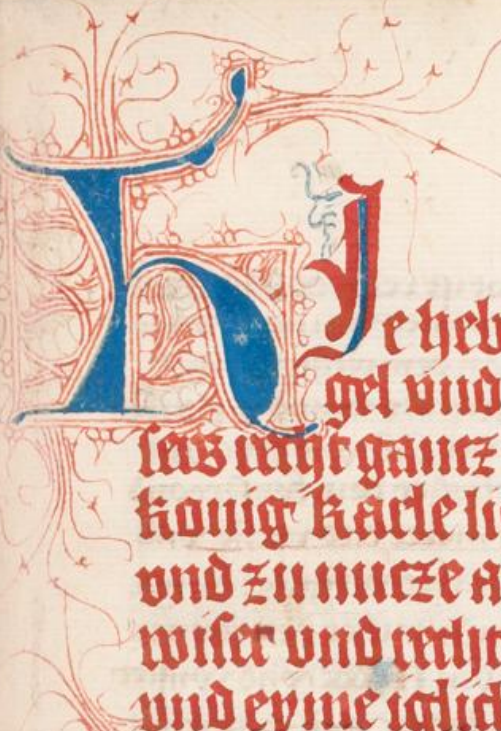 HIe heb
gel vnd
seis recht gantz
konig karle li
vnd zu nucze a
wiser vnd recht
vnd eyme iglich